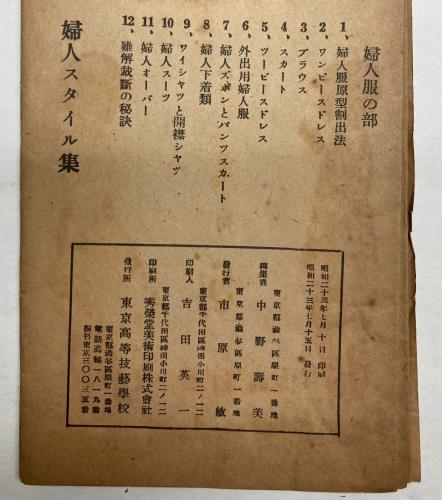 婦人服の部
1、婦人服原型割出法
2、ワンピースドレス
3、ブラウス
4、スカート
5、ツーピースドレス
6、外出用婦人服
7、婦人ズボンとパンツスカート
8、婦人下着類
9、ワイシャツと開襟シャツ
10、婦人スーツ
11、婦人オーバー
12、難解裁斷の秘訣
婦人スタイル集
昭和二十三年七月十日 印刷
昭和二十三年七月十五日 發行
東京都澁谷區原町一番地
編集者 中野壽美
東京都澁谷區原町一番地
發行者 市原敏
東京都千代田區神田小川町二ノ一二
印刷人 吉田英一
東京都千代田區神田小川町二ノ一二
印刷所 秀榮堂美術印刷株式會社
發行所 東京高等技藝學校
東京都澁谷區原町一番地
電話高輪一八一九番
振料東京三〇〇三五番